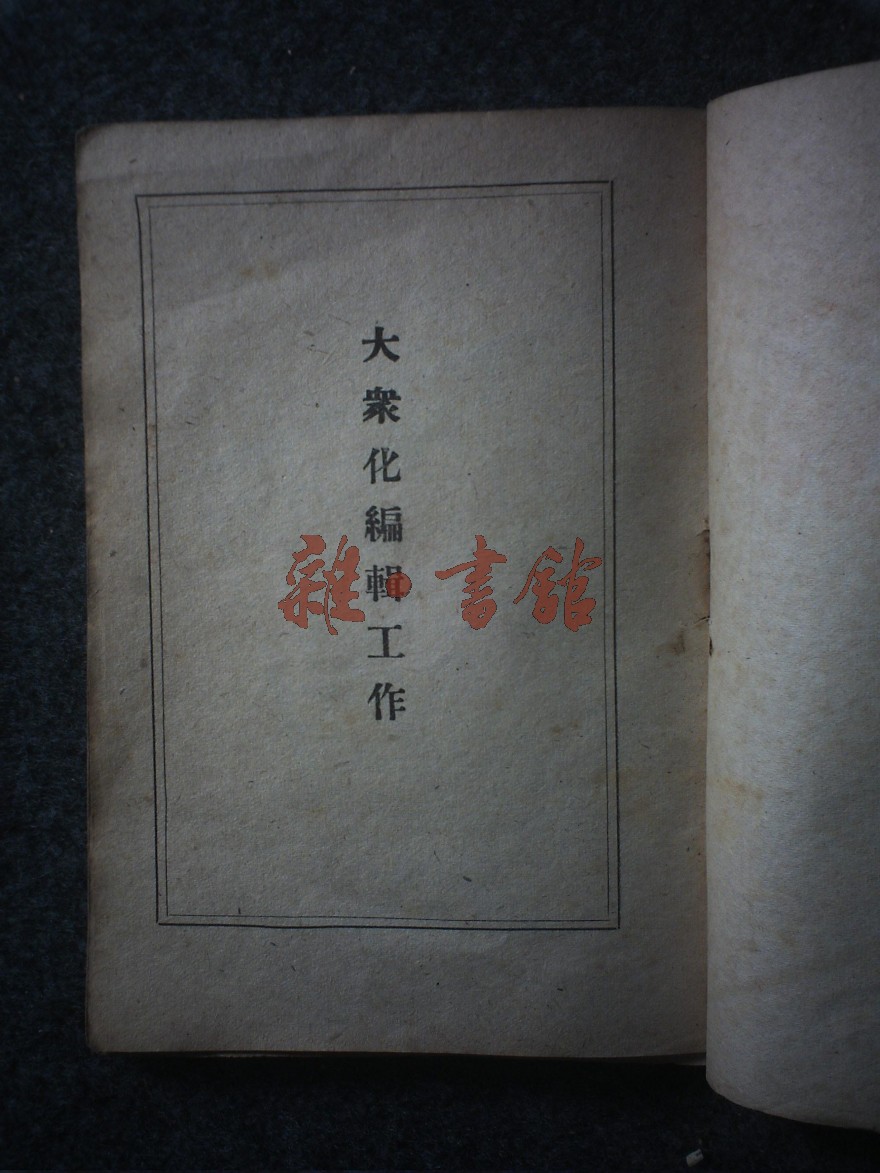 大衆化編輯工作
雜·書館